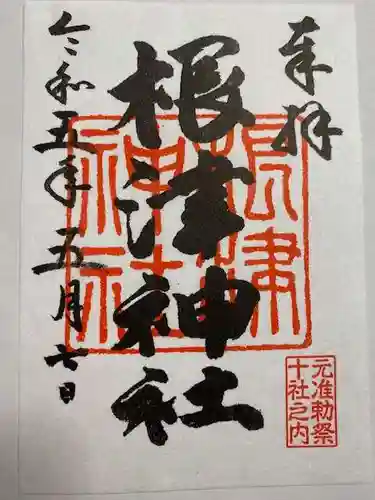 奉拝
根津神社
根津神社
元准勅祭
十社之内
令和五年五月六日